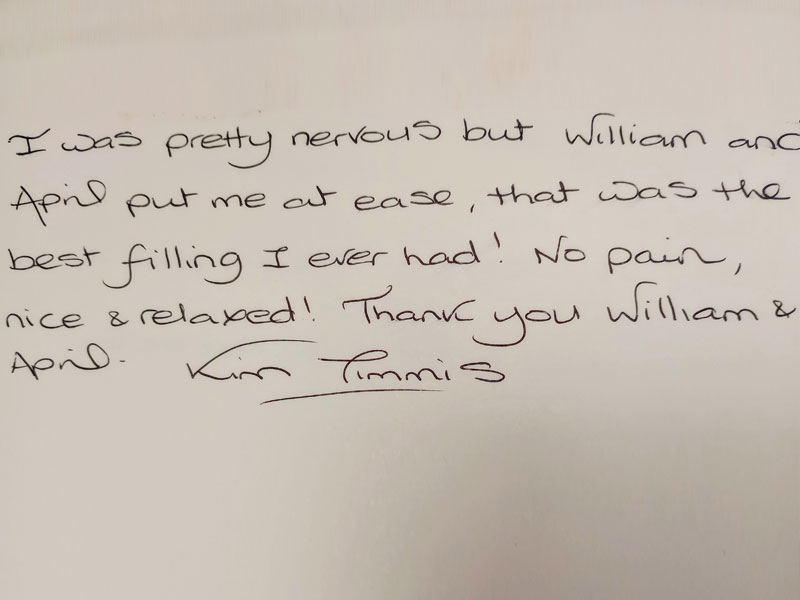 I was pretty nervous but William and
April put me at ease, that was the
best filling I ever had! No pain,
nice & relaxed! Thank you William &
April. Kim Timmis